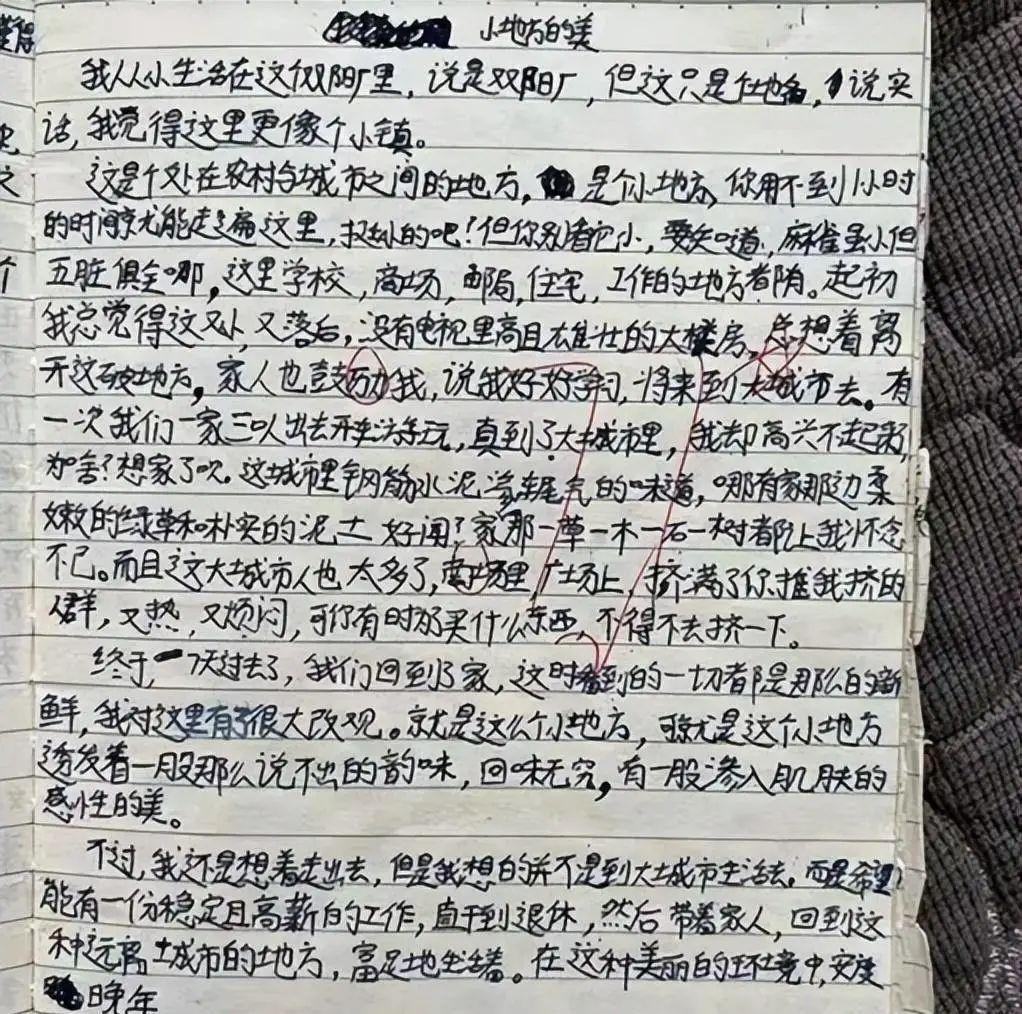 小地方的美
我从小生活在这个双阳厂里，说是双阳厂，但这只是住地名，说实
话，我觉得这里更像个小镇。
这是个处在农村与城市之间的地方，是个小地方，你用不到1小时
的时间就能走遍这里，挺小的吧！但你别看它小，要知道，麻雀虽小但
五脏俱全哪，这里学校，商场，邮局，住宅，工作的地方都有。起初
我总觉得这又小，又落后，没有电视里高且雄壮的大楼房，总想着离
开这破地方，家人也鼓励我，说我好好学习，将来到大城市去。有
一次我们一家三口人出去开车游玩，真到了大城市里，我却高兴不起来，
为啥？想家了呗。这城市里钢筋水泥汽车尾气的味道，哪有家那边柔
嫩的绿草和朴实的泥土好闻？家那一草一木一石一树都让我怀念
不已。而且这大城市人也太多了，商场里，广场上，挤满了你推我挤的
人群，又热，又烦闷，可你有时都买什么东西，不得不去挤一下。
终于，7天过去了，我们回到了家，这时看到的一切都是那么的新
鲜，我对这里有了很大改观。就是这么个小地方，可就是这个小地方
透发着一股那么说不出的韵味，回味无穷，有一股渗入肌肤的
感性的美。
不过，我还是想着走出去，但是我想的并不是到大城市生活去。而是希望
能有一份稳定且高薪的工作，直干到退休，然后带着家人，回到这
种远离城市的地方，富足地生活着。在这种美丽的环境中，安度
晚年